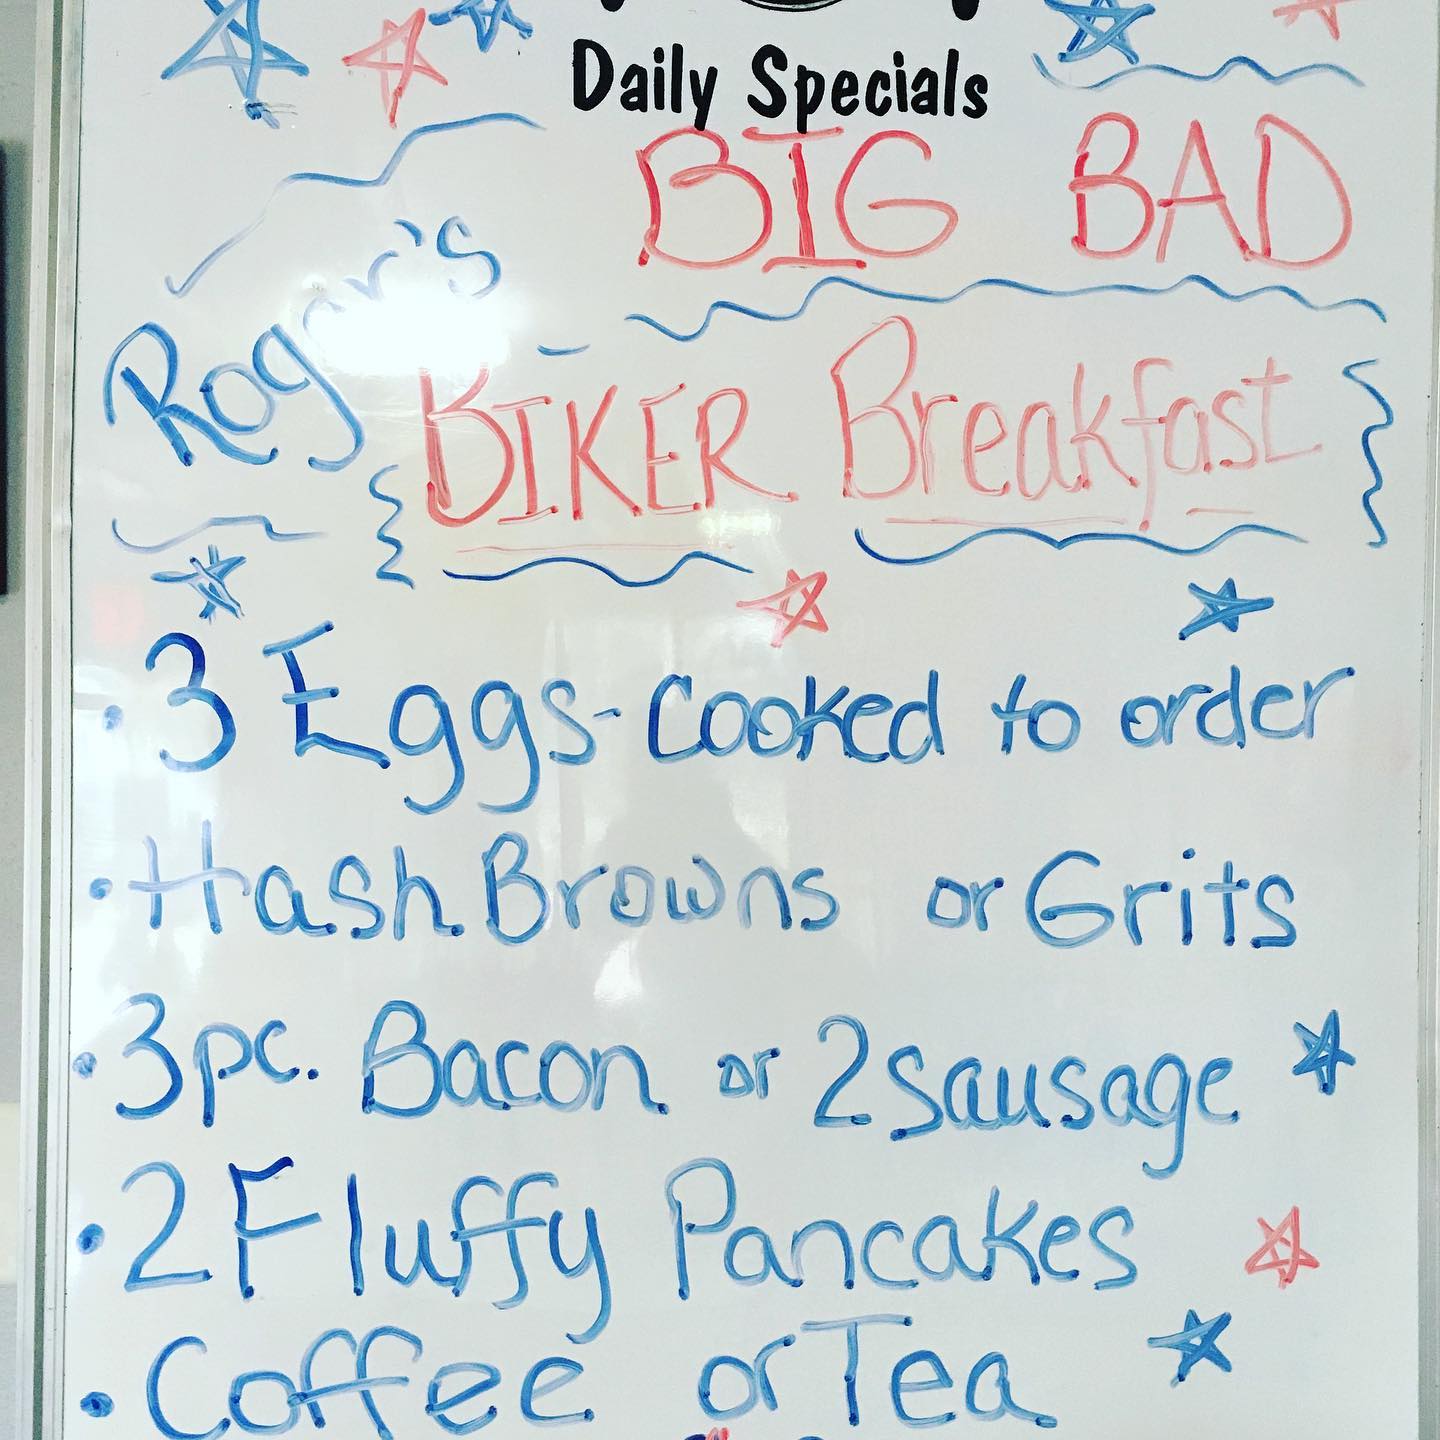 Daily Specials
BIG BAD
Roger's
BIKER Breakfast
• 3 Eggs - Cooked to order
• Hash Browns or Grits
• 3 pc. Bacon or 2 sausage
• 2 Fluffy Pancakes
• Coffee or Tea